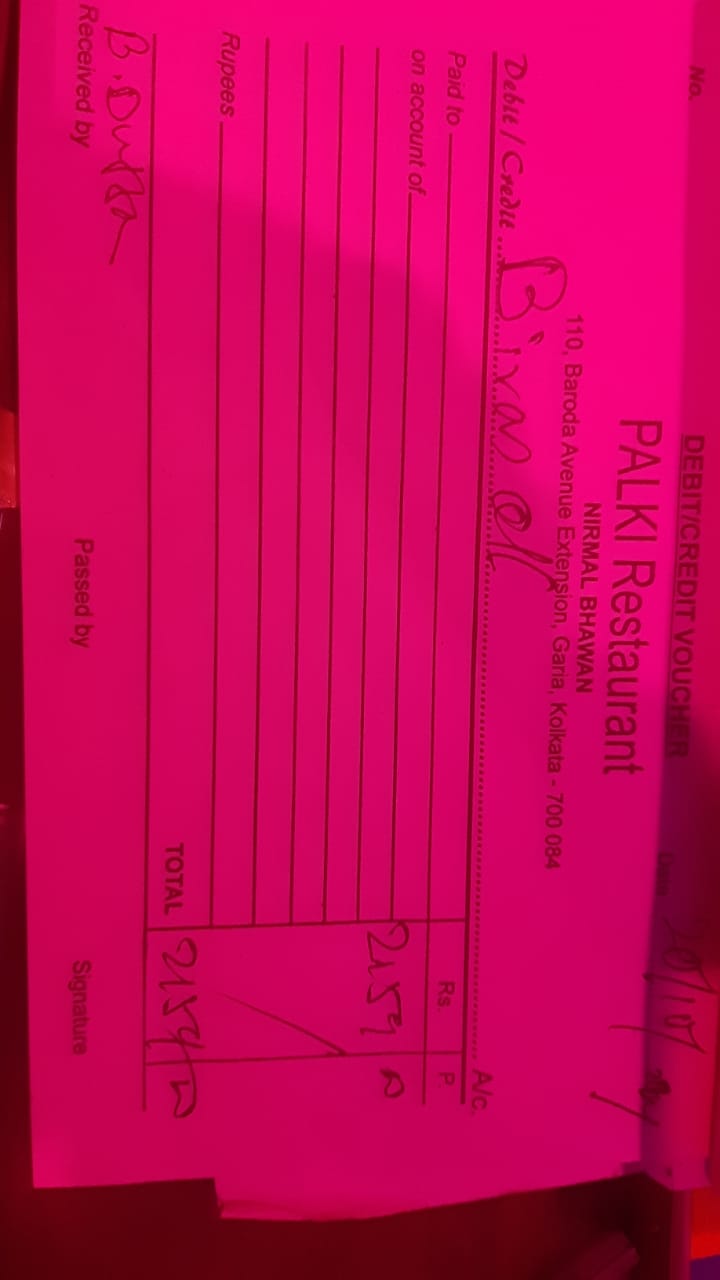 DEBIT/CREDIT VOUCHER
No.
Date 20/10/
PALKI Restaurant
NIRMAL BHAWAN
110, Baroda Avenue Extension, Garia, Kolkata - 700 084
Debit / Credit A/c.
Paid to Rs. P
on account of 2154
Rupees
TOTAL 2154
B. Dutta
Received by Passed by Signature